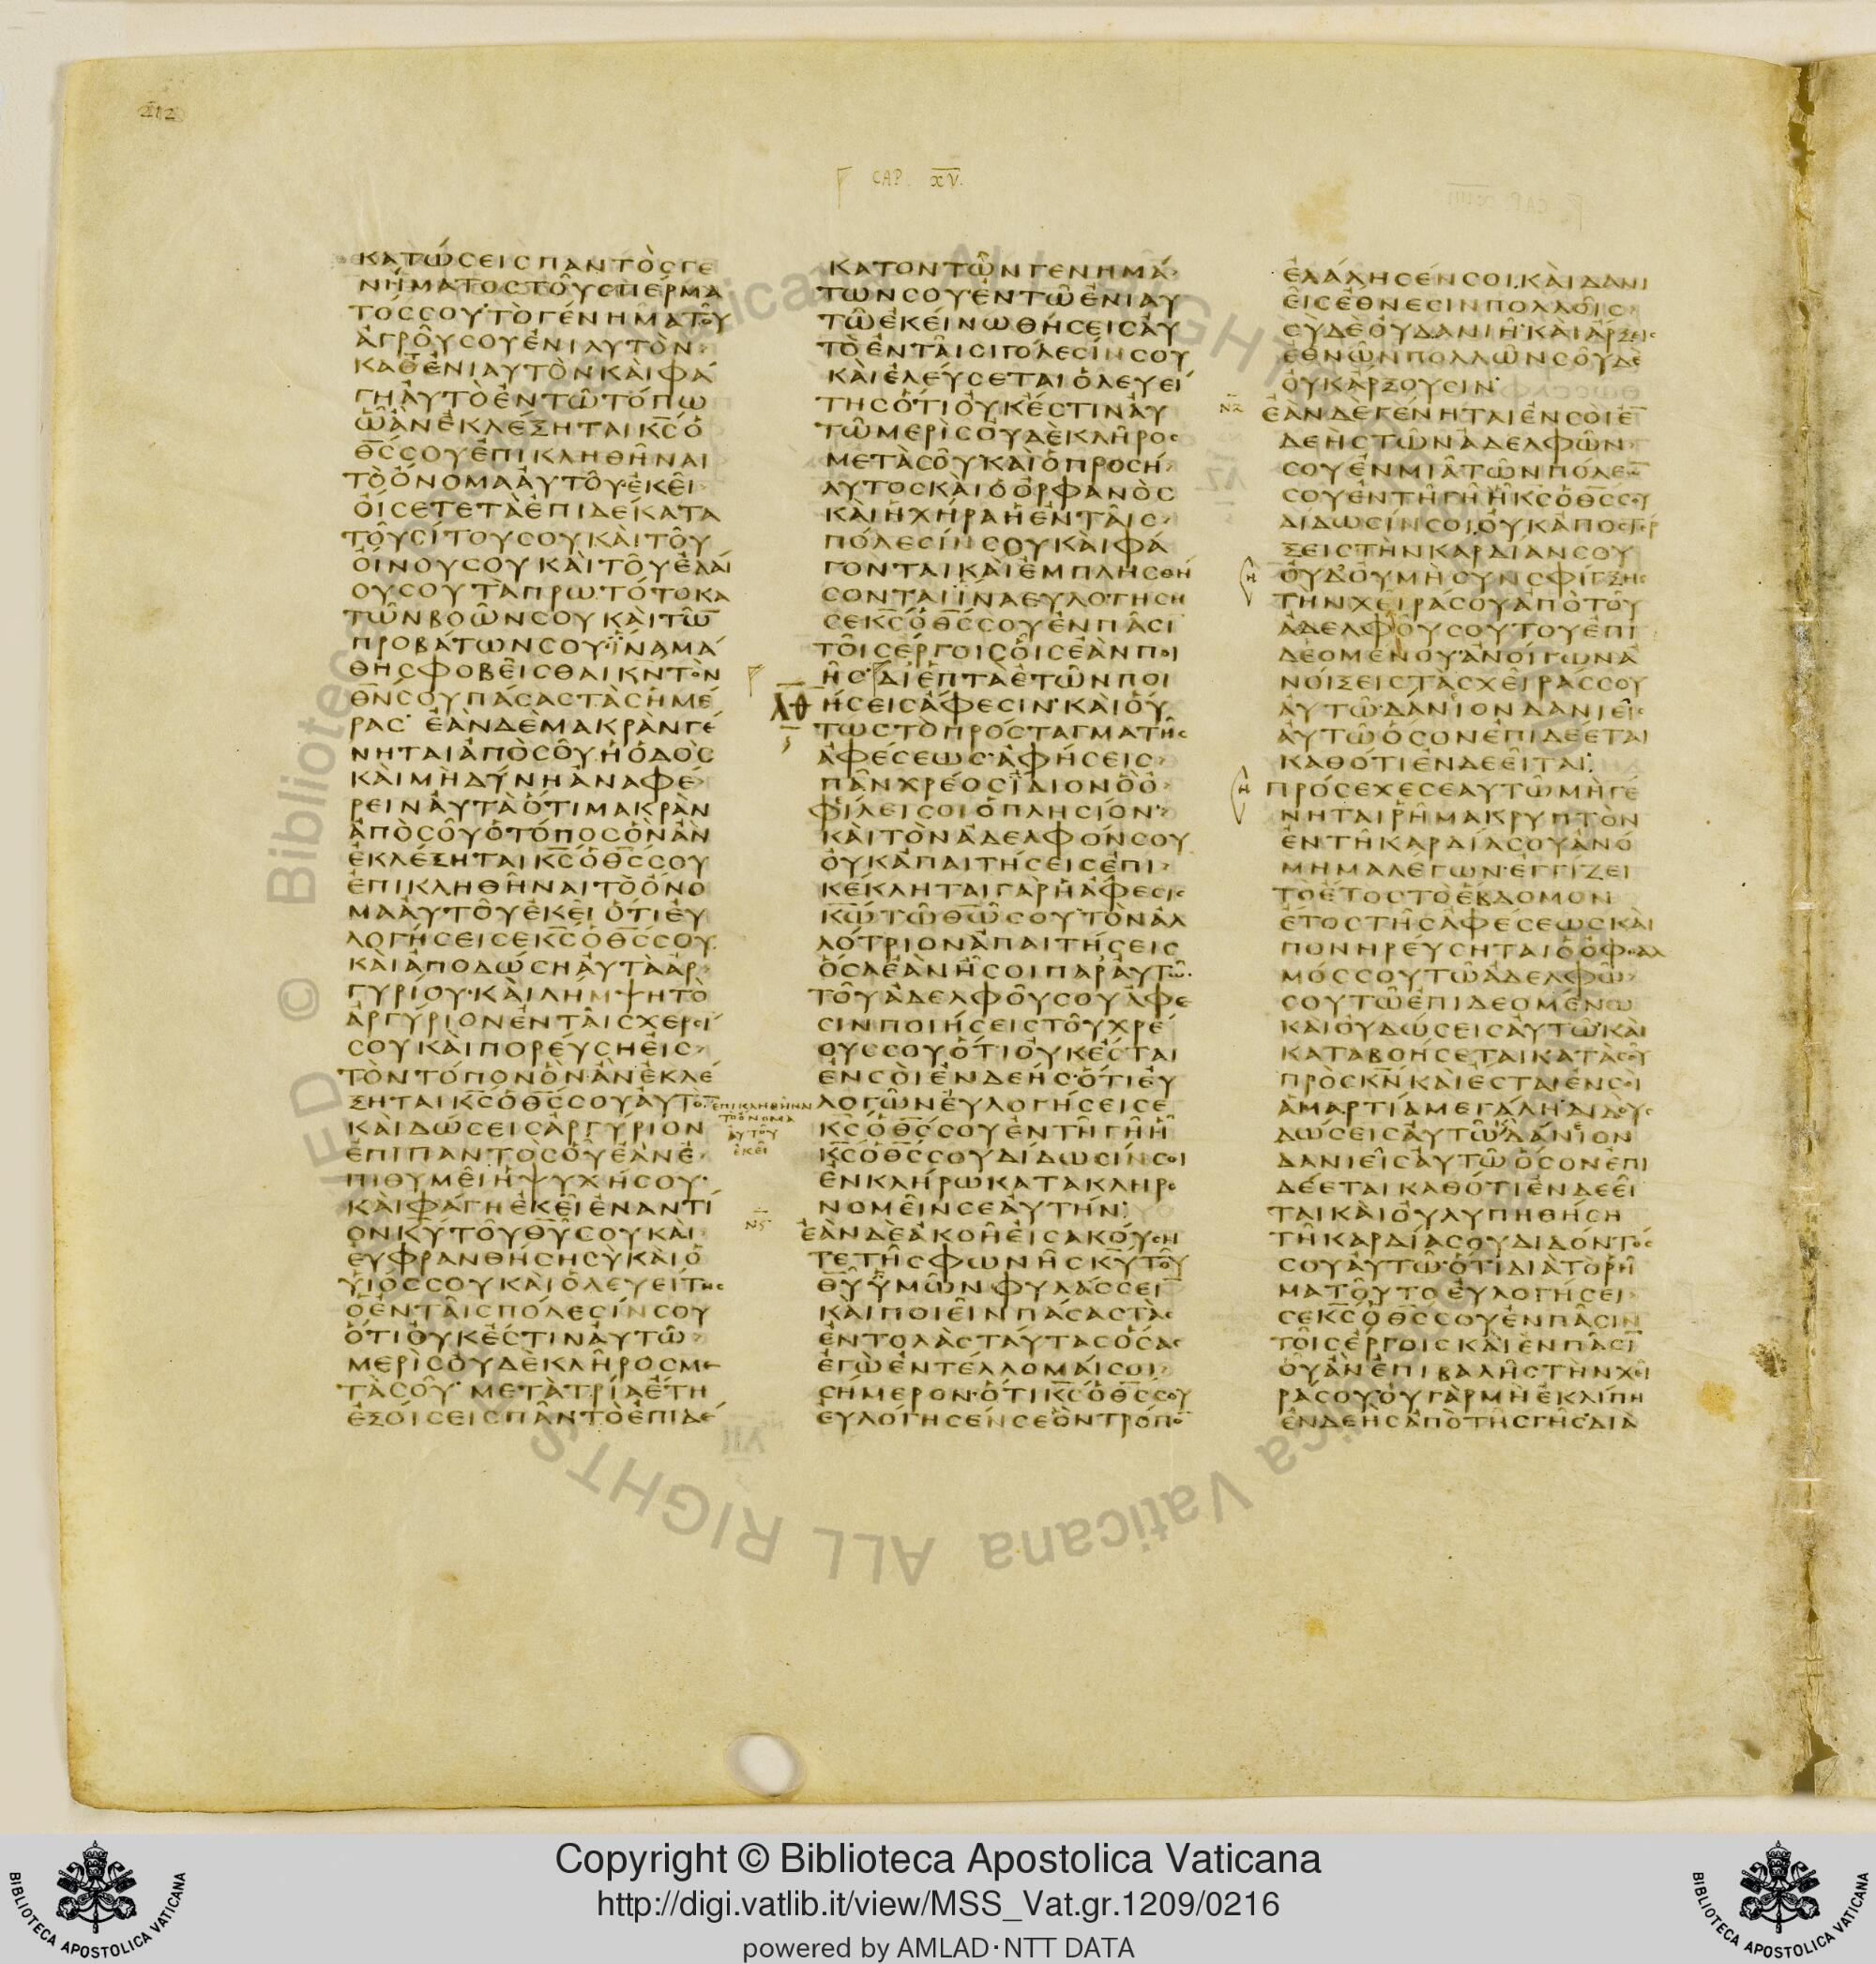 212
CAP. XV.
ΚΑΤΩΣΕΙΣΠΑΝΤΟΣΓΕ
ΝΗΜΑΤΟΣΤΟΥΣΠΕΡΜΑ
ΤΟΣΣΟΥΤΟΓΕΝΗΜΑΤΟΥ
ΑΓΡΟΥΣΟΥΕΝΙΑΥΤΟΝ
ΚΑΘΕΝΙΑΥΤΟΝΚΑΙΦΑ
ΓΗΑΥΤΟΕΝΤΩΤΟΠΩ
ΩΑΝΕΚΛΕΞΗΤΑΙΚ̅Σ̅Ο
Θ̅Σ̅ΣΟΥΕΠΙΚΛΗΘΗΝΑΙ
ΤΟΟΝΟΜΑΑΥΤΟΥΕΚΕΙ
ΟΙΣΕΤΕΤΑΕΠΙΔΕΚΑΤΑ
ΤΟΥΣΙΤΟΥΣΟΥΚΑΙΤΟΥ
ΟΙΝΟΥΣΟΥΚΑΙΤΟΥΕΛΑΙ
ΟΥΣΟΥΤΑΠΡΩΤΟΤΟΚΑ
ΤΩΝΒΟΩΝΣΟΥΚΑΙΤΩ̅
ΠΡΟΒΑΤΩΝΣΟΥΙΝΑΜΑ
ΘΗΣΦΟΒΕΙΣΘΑΙΚ̅Ν̅ΤΟΝ
Θ̅Ν̅ΣΟΥΠΑΣΑΣΤΑΣΗΜΕ
ΡΑΣ ΕΑΝΔΕΜΑΚΡΑΝΓΕ
ΝΗΤΑΙΑΠΟΣΟΥΗΟΔΟΣ
ΚΑΙΜΗΔΥΝΗΑΝΑΦΕ
ΡΕΙΝΑΥΤΑΟΤΙΜΑΚΡΑΝ
ΑΠΟΣΟΥΟΤΟΠΟΣΟΝΑΝ
ΕΚΛΕΞΗΤΑΙΚ̅Σ̅ΟΘ̅Σ̅ΣΟΥ
ΕΠΙΚΛΗΘΗΝΑΙΤΟΟΝΟ
ΜΑΑΥΤΟΥΕΚΕΙ ΟΤΙΕΥ
ΛΟΓΗΣΕΙΣΕΚ̅Σ̅ΟΘ̅Σ̅ΣΟΥ
ΚΑΙΑΠΟΔΩΣΗΑΥΤΑΑΡ
ΓΥΡΙΟΥ·ΚΑΙΛΗΜΨΗΤΟ
ΑΡΓΥΡΙΟΝΕΝΤΑΙΣΧΕΡΣΙ
ΣΟΥΚΑΙΠΟΡΕΥΣΗΕΙΣ
ΤΟΝΤΟΠΟΝΟΝΑΝΕΚΛΕ
ΞΗΤΑΙΚ̅Σ̅ΟΘ̅Σ̅ΣΟΥΑΥΤΟ̅
ΕΠΙΚΛΗΘΗΝΑΙ
ΤΟΟΝΟΜΑ
ΑΥΤΟΥ
ΕΚΕΙ
ΚΑΙΔΩΣΕΙΣΑΡΓΥΡΙΟΝ
ΕΠΙΠΑΝΤΟΣΟΥΕΑΝΕ
ΠΙΘΥΜΕΙΗΨΥΧΗΣΟΥ·
ΚΑΙΦΑΓΗΕΚΕΙΕΝΑΝΤΙ
ΟΝΚ̅Υ̅ΤΟΥΘ̅Υ̅ΣΟΥΚΑΙ
ΕΥΦΡΑΝΘΗΣΗΣΥΚΑΙΟ
ΥΙΟΣΣΟΥΚΑΙΟΛΕΥΕΙΤΗΣ
ΟΕΝΤΑΙΣΠΟΛΕΣΙΝΣΟΥ
ΟΤΙΟΥΚΕΣΤΙΝΑΥΤΩ
ΜΕΡΙΣΟΥΔΕΚΛΗΡΟΣΜΕ
ΤΑΣΟΥ ΜΕΤΑΤΡΙΑΕΤΗ
ΕΞΟΙΣΕΙΣΠΑΝΤΟΕΠΙΔΕ
ΚΑΤΟΝΤΩΝΓΕΝΗΜΑ
ΤΩΝΣΟΥΕΝΤΩΕΝΙΑΥ
ΤΩΕΚΕΙΝΩΘΗΣΕΙΣΑΥ
ΤΟΕΝΤΑΙΣΠΟΛΕΣΙΝΣΟΥ
ΚΑΙΕΛΕΥΣΕΤΑΙΟΛΕΥΕΙ
ΤΗΣΟΤΙΟΥΚΕΣΤΙΝΑΥ
ΤΩΜΕΡΙΣΟΥΔΕΚΛΗΡΟΣ
ΜΕΤΑΣΟΥΚΑΙΟΠΡΟΣΗ
ΛΥΤΟΣΚΑΙΟΟΡΦΑΝΟΣ
ΚΑΙΗΧΗΡΑΗΕΝΤΑΙΣ
ΠΟΛΕΣΙΝΣΟΥΚΑΙΦΑ
ΓΟΝΤΑΙΚΑΙΕΜΠΛΗΣΘΗ
ΣΟΝΤΑΙΙΝΑΕΥΛΟΓΗΣΗ
ΣΕΚ̅Σ̅ΟΘ̅Σ̅ΣΟΥΕΝΠΑΣΙ
ΤΟΙΣΕΡΓΟΙΣΟΙΣΕΑΝΠΟΙ
ΗΣ ΔΙΕΠΤΑΕΤΩΝΠΟΙ
Λ̅Θ̅
ΗΣΕΙΣΑΦΕΣΙΝ·ΚΑΙΟΥ
ΤΩΣΤΟΠΡΟΣΤΑΓΜΑΤΗΣ
ΑΦΕΣΕΩΣ·ΑΦΗΣΕΙΣ
ΠΑΝΧΡΕΟΣΙΔΙΟΝΟΟ
ΦΙΛΕΙΣΟΙΟΠΛΗΣΙΟΝ
ΚΑΙΤΟΝΑΔΕΛΦΟΝΣΟΥ
ΟΥΚΑΠΑΙΤΗΣΕΙΣΕΠΙ
ΚΕΚΛΗΤΑΙΓΑΡΗΑΦΕΣΙΣ
Κ̅Ω̅ΤΩΘ̅Ω̅ΣΟΥΤΟΝΑΛ
ΛΟΤΡΙΟΝΑΠΑΙΤΗΣΕΙΣ
ΟΣΑΕΑΝΗΣΟΙΠΑΡΑΥΤΩ·
ΤΟΥΑΔΕΛΦΟΥΣΟΥΑΦΕ
ΣΙΝΠΟΙΗΣΕΙΣΤΟΥΧΡΕ
ΟΥΣΣΟΥΟΤΙΟΥΚΕΣΤΑΙ
ΕΝΣΟΙΕΝΔΕΗΣ·ΟΤΙΕΥ
ΛΟΓΩΝΕΥΛΟΓΗΣΕΙΣΕ
Κ̅Σ̅ΟΘ̅Σ̅ΣΟΥΕΝΤΗΓΗΗ
Κ̅Σ̅ΟΘ̅Σ̅ΣΟΥΔΙΔΩΣΙΝΣΟΙ
ΕΝΚΛΗΡΩΚΑΤΑΚΛΗΡΟ
ΝΟΜΕΙΝΣΕΑΥΤΗΝ
Ν̅Ϛ̅
ΕΑΝΔΕΑΚΟΗΕΙΣΑΚΟΥΣΗ
ΤΕΤΗΣΦΩΝΗΣΚ̅Υ̅ΤΟΥ
Θ̅Υ̅ΥΜΩΝΦΥΛΑΣΣΕΙ̅
ΚΑΙΠΟΙΕΙΝΠΑΣΑΣΤΑΣ
ΕΝΤΟΛΑΣΤΑΥΤΑΣΟΣΑΣ
ΕΓΩΕΝΤΕΛΛΟΜΑΙΣΟΙ
ΣΗΜΕΡΟΝ·ΟΤΙΚ̅Σ̅ΟΘ̅Σ̅ΣΟΥ
ΕΥΛΟΓΗΣΕΝΣΕΟΝΤΡΟΠΟ̅
ΕΛΑΛΗΣΕΝΣΟΙ.ΚΑΙΔΑΝΙ
ΕΙΣΕΘΝΕΣΙΝΠΟΛΛΟΙΣ
ΣΥΔΕΟΥΔΑΝΙΗ·ΚΑΙΑΡΞΕΙΣ
ΕΘΝΩΝΠΟΛΛΩΝΣΟΥΔΕ
ΟΥΚΑΡΞΟΥΣΙΝ
Ν̅Ζ̅
ΕΑΝΔΕΓΕΝΗΤΑΙΕΝΣΟΙΕ̅
ΔΕΗΣΤΩΝΑΔΕΛΦΩΝ
ΣΟΥΕΝΜΙΑΤΩΝΠΟΛΕΩ̅
ΣΟΥΕΝΤΗΓΗΗΚ̅Σ̅ΟΘ̅Σ̅ΣΟΥ
ΔΙΔΩΣΙΝΣΟΙ.ΟΥΚΑΠΟΣΤΕΡ
ΞΕΙΣΤΗΝΚΑΡΔΙΑΝΣΟΥ
ΟΥΔΟΥΜΗΣΥΝΣΦΙΓΞΗΣ
ΤΗΝΧΕΙΡΑΣΟΥΑΠΟΤΟΥ
ΑΔΕΛΦΟΥΣΟΥΤΟΥΕΠΙ
ΔΕΟΜΕΝΟΥΑΝΟΙΓΩΝΑ
ΝΟΙΞΕΙΣΤΑΣΧΕΙΡΑΣΣΟΥ
ΑΥΤΩΔΑΝΙΟΝΔΑΝΙΕΙΣ
ΑΥΤΩΟΣΟΝΕΠΙΔΕΕΤΑΙ
ΚΑΘΟΤΙΕΝΔΕΕΙΤΑΙ
ΠΡΟΣΕΧΕΣΕΑΥΤΩΜΗΓΕ
ΝΗΤΑΙΡΗΜΑΚΡΥΠΤΟΝ
ΕΝΤΗΚΑΡΔΙΑΣΟΥΑΝΟ
ΜΗΜΑΛΕΓΩΝ·ΕΓΓΙΖΕΙ
ΤΟΕΤΟΣΤΟΕΒΔΟΜΟΝ
ΕΤΟΣΤΗΣΑΦΕΣΕΩΣΚΑΙ
ΠΟΝΗΡΕΥΣΗΤΑΙΟΟΦΘΑΛ
ΜΟΣΣΟΥΤΩΑΔΕΛΦΩ
ΣΟΥΤΩΕΠΙΔΕΟΜΕΝΩ
ΚΑΙΟΥΔΩΣΕΙΣΑΥΤΩΚΑΙ
ΚΑΤΑΒΟΗΣΕΤΑΙΚΑΤΑΣΟΥ
ΠΡΟΣΚ̅Ν̅ΚΑΙΕΣΤΑΙΕΝΣΟΙ
ΑΜΑΡΤΙΑΜΕΓΑΛΗ·ΔΙΔΟΥΣ
ΔΩΣΕΙΣΑΥΤΩΔΑΝΙΟΝ
ΔΑΝΙΕΙΣΑΥΤΩΟΣΟΝΕΠΙ
ΔΕΕΤΑΙΚΑΘΟΤΙΕΝΔΕΕΙ
ΤΑΙΚΑΙΟΥΛΥΠΗΘΗΣΗ
ΤΗΚΑΡΔΙΑΣΟΥΔΙΔΟΝΤΟΣ
ΣΟΥΑΥΤΩ·ΟΤΙΔΙΑΤΟΡΗ
ΜΑΤΟΥΤΟΕΥΛΟΓΗΣΕΙ
ΣΕΚ̅Σ̅ΟΘ̅Σ̅ΣΟΥΕΝΠΑΣΙΝ
ΤΟΙΣΕΡΓΟΙΣΚΑΙΕΝΠΑΣΙ̅
ΟΥΑΝΕΠΙΒΑΛΗΣΤΗΝΧΕΙ
ΡΑΣΟΥΟΥΓΑΡΜΗΕΚΛΙΠΗ
ΕΝΔΕΗΣΑΠΟΤΗΣΓΗΣΔΙΑ
© Biblioteca Apostolica Vaticana ALL RIGHTS RESERVED
Copyright © Biblioteca Apostolica Vaticana
http://digi.vatlib.it/view/MSS_Vat.gr.1209/0216
powered by AMLAD·NTT DATA
BIBLIOTECA APOSTOLICA VATICANA
BIBLIOTECA APOSTOLICA VATICANA